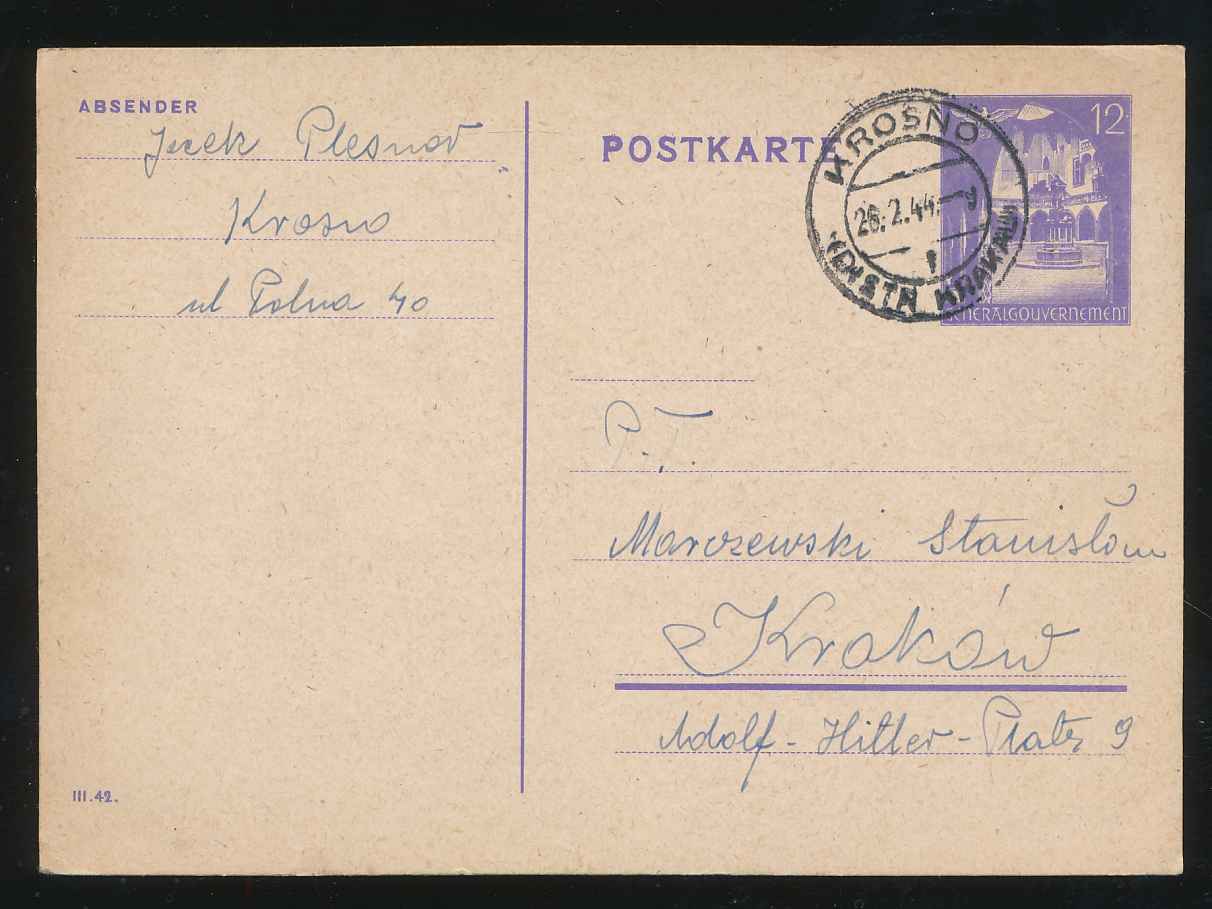 ABSENDER
Jacek Plesnar
Krosno
ul Polna 40
III.42.
POSTKARTE
KROSNO
26.2.44.
(DISTR. KRAKAU)
12
GENERALGOUVERNEMENT
P.T.
Marczewski Stanisław
Kraków
Adolf-Hitler-Platz 9